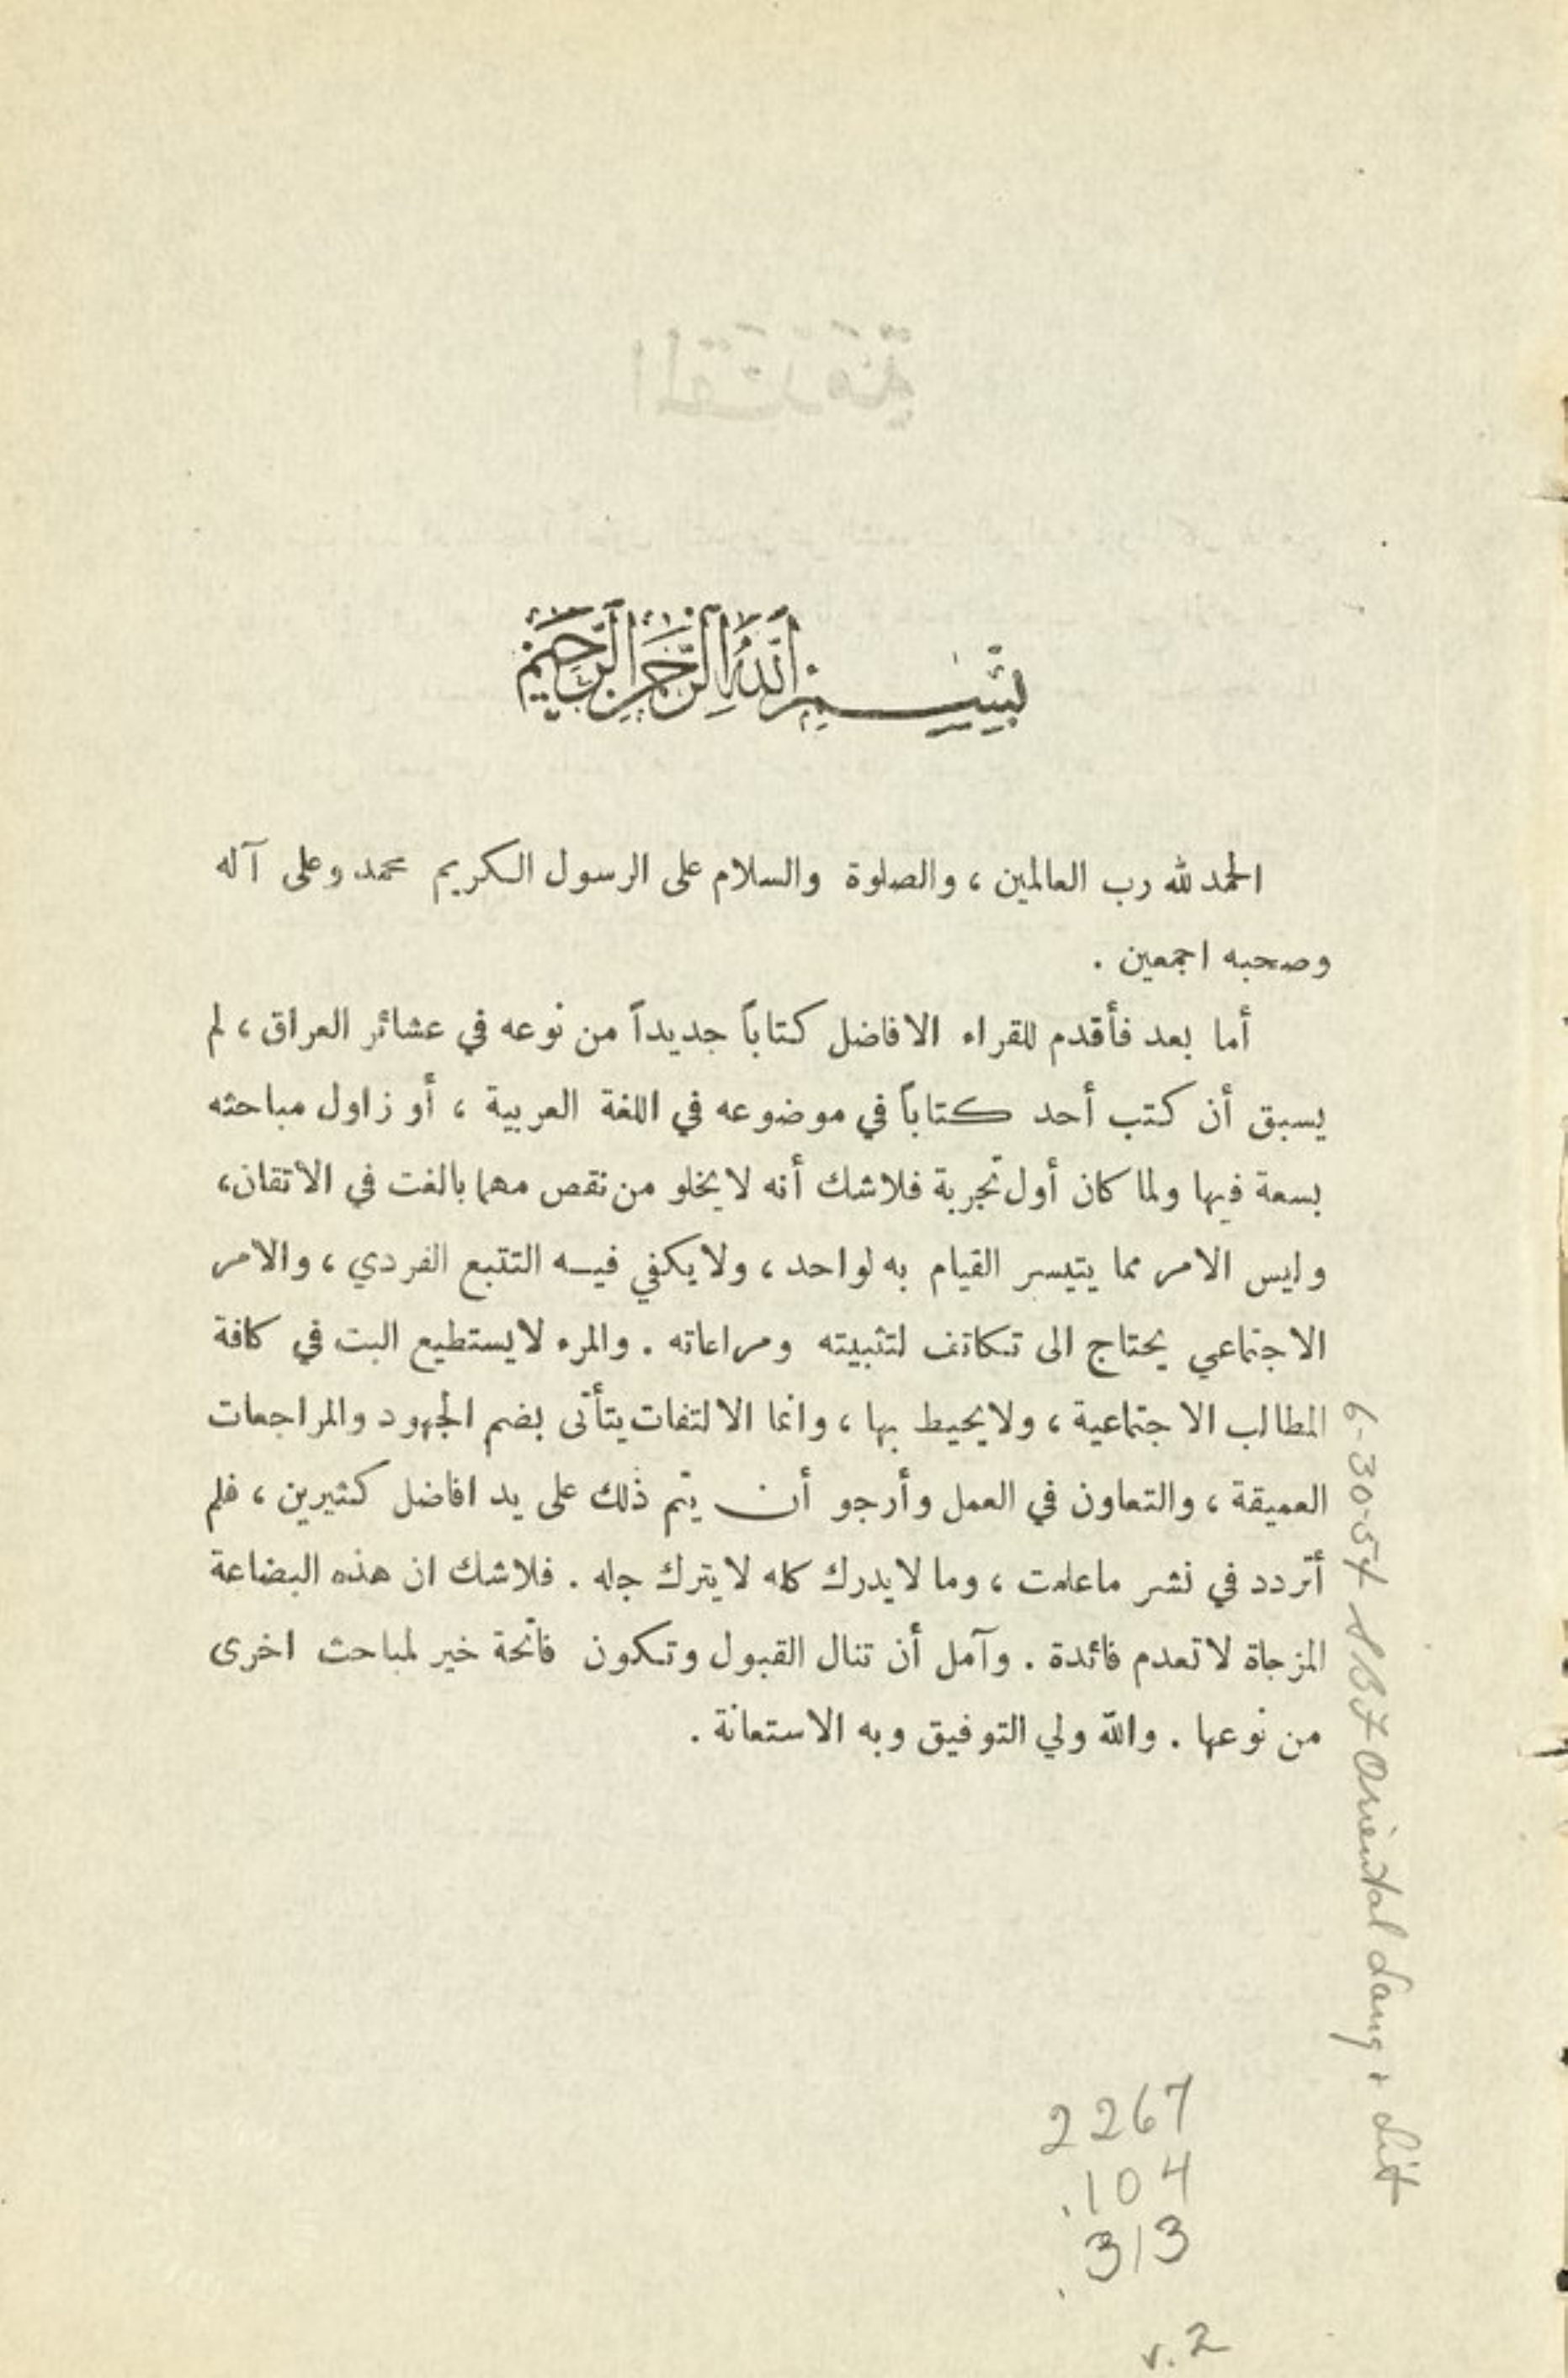 بسم الله الرحمن الرحيم
الحمد لله رب العالمين ، والصلوة والسلام على الرسول الكريم محمد وعلى آله
وصحبه اجمعين .
أما بعد فأقدم للقراء الافاضل كتاباً جديداً من نوعه في عشائر العراق ، لم
يسبق أن كتب أحد كتاباً في موضوعه في اللغة العربية ، أو زاول مباحثه
بسعة فيها ولما كان أول تجربة فلاشك أنه لا يخلو من نقص مهما بالغت في الاتقان ،
وليس الامر مما يتيسر القيام به لواحد ، ولا يكفي فيه التتبع الفردي ، والامر
الاجتماعي يحتاج الى تكاتف لتثبيته ومراعاته . والمرء لا يستطيع البت في كافة
المطالب الاجتماعية ، ولا يحيط بها ، وانما الالتفات يتأتى بضم الجهود والمراجعات
العميقة ، والتعاون في العمل وأرجو أن يتم ذلك على يد افاضل كثيرين ، فلم
أتردد في نشر ماعلمت ، وما لا يدرك كله لا يترك جله . فلاشك ان هذه البضاعة
المزجاة لا تعدم فائدة . وآمل أن تنال القبول وتكون فاتحة خير لمباحث اخرى
من نوعها . والله ولي التوفيق وبه الاستعانة .
6-30-54 SBF Oriental Lang + Lit
2267
.104
.313
v.2